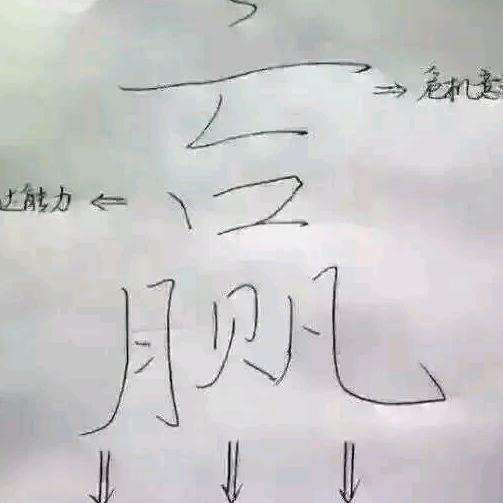 赢
危机意
达能力